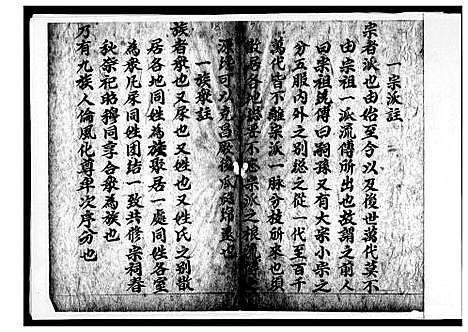 一宗派註
宗者派也由俗至今以及後世萬代莫不
由宗祖一派流傳所出也故謂之前人
曰宗祖後傳曰嗣孫又有大宗小宗之
分五服內外之別總之從一代至百千
萬代皆不離宗派一脉分枝所來也須
散居各地總要不忘宗派之根
源
可以克昌厥後瓜瓞綿也
一族衆註
族者衆也又屬也又姓也又姓氏之別散
居各地同姓為族聚居一處同姓各室
為衆凡屬同姓团結一致共修宗祠春
秋祭祀昭穆同享合衆為族也
乃有九族人倫風化尊卑次序分也